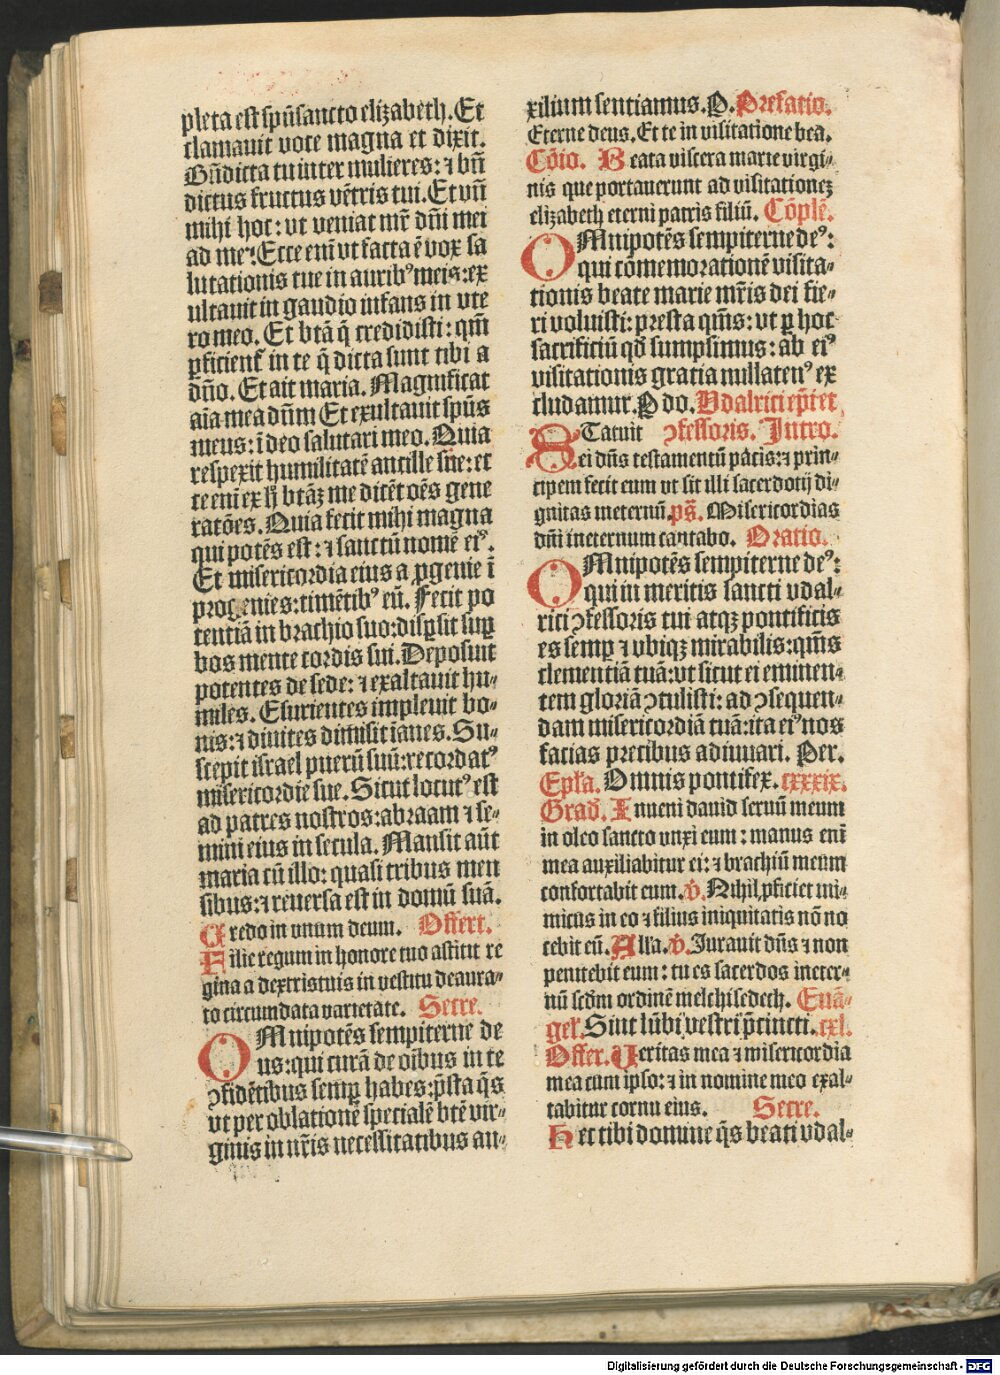 pleta est spũsancto elizabeth. Et
clamauit voce magna et dixit.
Bñdicta tu inter mulieres: ⁊ bñ
dictus fructus vẽtris tui. Et vñ
mihi hoc: vt veniat mr̃ dñi mei
ad me?. Ecce eni vt facta ẽ vox sa
lutationis tue in aurib⁹ meis: ex
ultauit in gaudio infans in vte
ro meo. Et btã q̃ credidisti: qm̃
ꝑficient᷑ in te q̃ dicta sunt tibi a
dño. Et ait maria. Magnificat
aĩa mea dñm Et exultauit spũs
meus: ĩ deo salutari meo. Quia
respexit humilitatẽ ancille sue: ec
ce enĩ ex h̃ btãȝ me dicẽt oẽs gene
ratões. Quia fecit mihi magna
qui potẽs est: ⁊ sanctũ nomẽ ei⁹.
Et misericordia eius a ꝓgenie ĩ
progenies: timẽtib⁹ eũ. Fecit po
tentiã in brachio suo: disꝑsit suꝑ
bos mente cordis sui. Deposuit
potentes de sede: ⁊ exaltauit hu-
miles. Esurientes impleuit bo-
nis: ⁊ diuites dimisit ianes. Su-
scepit israel puerũ suũ: recordat⁹
misericordie sue. Sicut locut⁹ est
ad patres nostros: abraam ⁊ se-
mini eius in secula. Mansit aũt
maria cũ illo: quasi tribus men
sibus: ⁊ reuersa est in domũ suã.
Credo in vnum deum. Offert.
Filie regum in honore tuo astitit re
gina a dextris tuis in vestitu deaura-
to circumdata varietate. Secre.
OMnipotẽs sempiterne de
us: qui curã de oĩbus in te
ↄfidẽtibus semꝑ habes: p̃sta q̃s
vt per oblationẽ specialẽ btẽ vir-
ginis in nr̃is necessitatibus au-
xilium sentiamus. P. Prefatio.
Eterne deus. Et te in visitatione bea.
Cõio. Beata viscera marie virgi-
nis que portauerunt ad visitationeȝ
elizabeth eterni patris filiũ. Cõplẽ.
OMnipotẽs sempiterne de⁹:
qui cõmemorationẽ visita-
tionis beate marie mr̃is dei fie-
ri voluisti: presta qm̃s: vt ꝑ hoc
sacrificiũ qđ sumpsimus: ab ei⁹
visitationis gratia nullaten⁹ ex
cludamur. P do. Vdalrici ep̃i et
STatuit ↄfessoris. Intro.
ei dñs testamentũ pacis: ⁊ prin-
cipem fecit eum vt sit illi sacerdotij di-
gnitas in eternũ. ps̃. Misericordias
dñi in eternum cantabo. Oratio.
OMnipotẽs sempiterne de⁹:
qui in meritis sancti vdal-
rici ↄfessoris tui atqȝ pontificis
es semꝑ ⁊ vbiqȝ mirabilis: qm̃s
clementiã tuã: vt sicut ei eminen-
tem gloriã ↄtulisti: ad ↄsequen-
dam misericordiã tuã: ita ei⁹ nos
facias precibus adiuuari. Per.
Epl̃a. Omnis pontifex. cxxxix.
Grad̃. Inueni dauid seruũ meum
in oleo sancto vnxi eum: manus enĩ
mea auxiliabitur ei: ⁊ brachiũ meum
confortabit eum. ꝟ. Nihil ꝓficiet ini-
micus in eo ⁊ filius iniquitatis nõ no
cebit eũ. All̃a. ꝟ. Iurauit dñs ⁊ non
penitebit eum: tu es sacerdos in eter-
nũ scđm ordinẽ melchisedech. Euã-
gel̃. Sint lũbi vestri p̃cincti. cxl.
Offer. Veritas mea ⁊ misericordia
mea cum ipso: ⁊ in nomine meo exal-
tabitur cornu eius. Secre.
Hec tibi domine q̃s beati vdal-
Digitalisierung gefördert durch die Deutsche Forschungsgemeinschaft - DFG